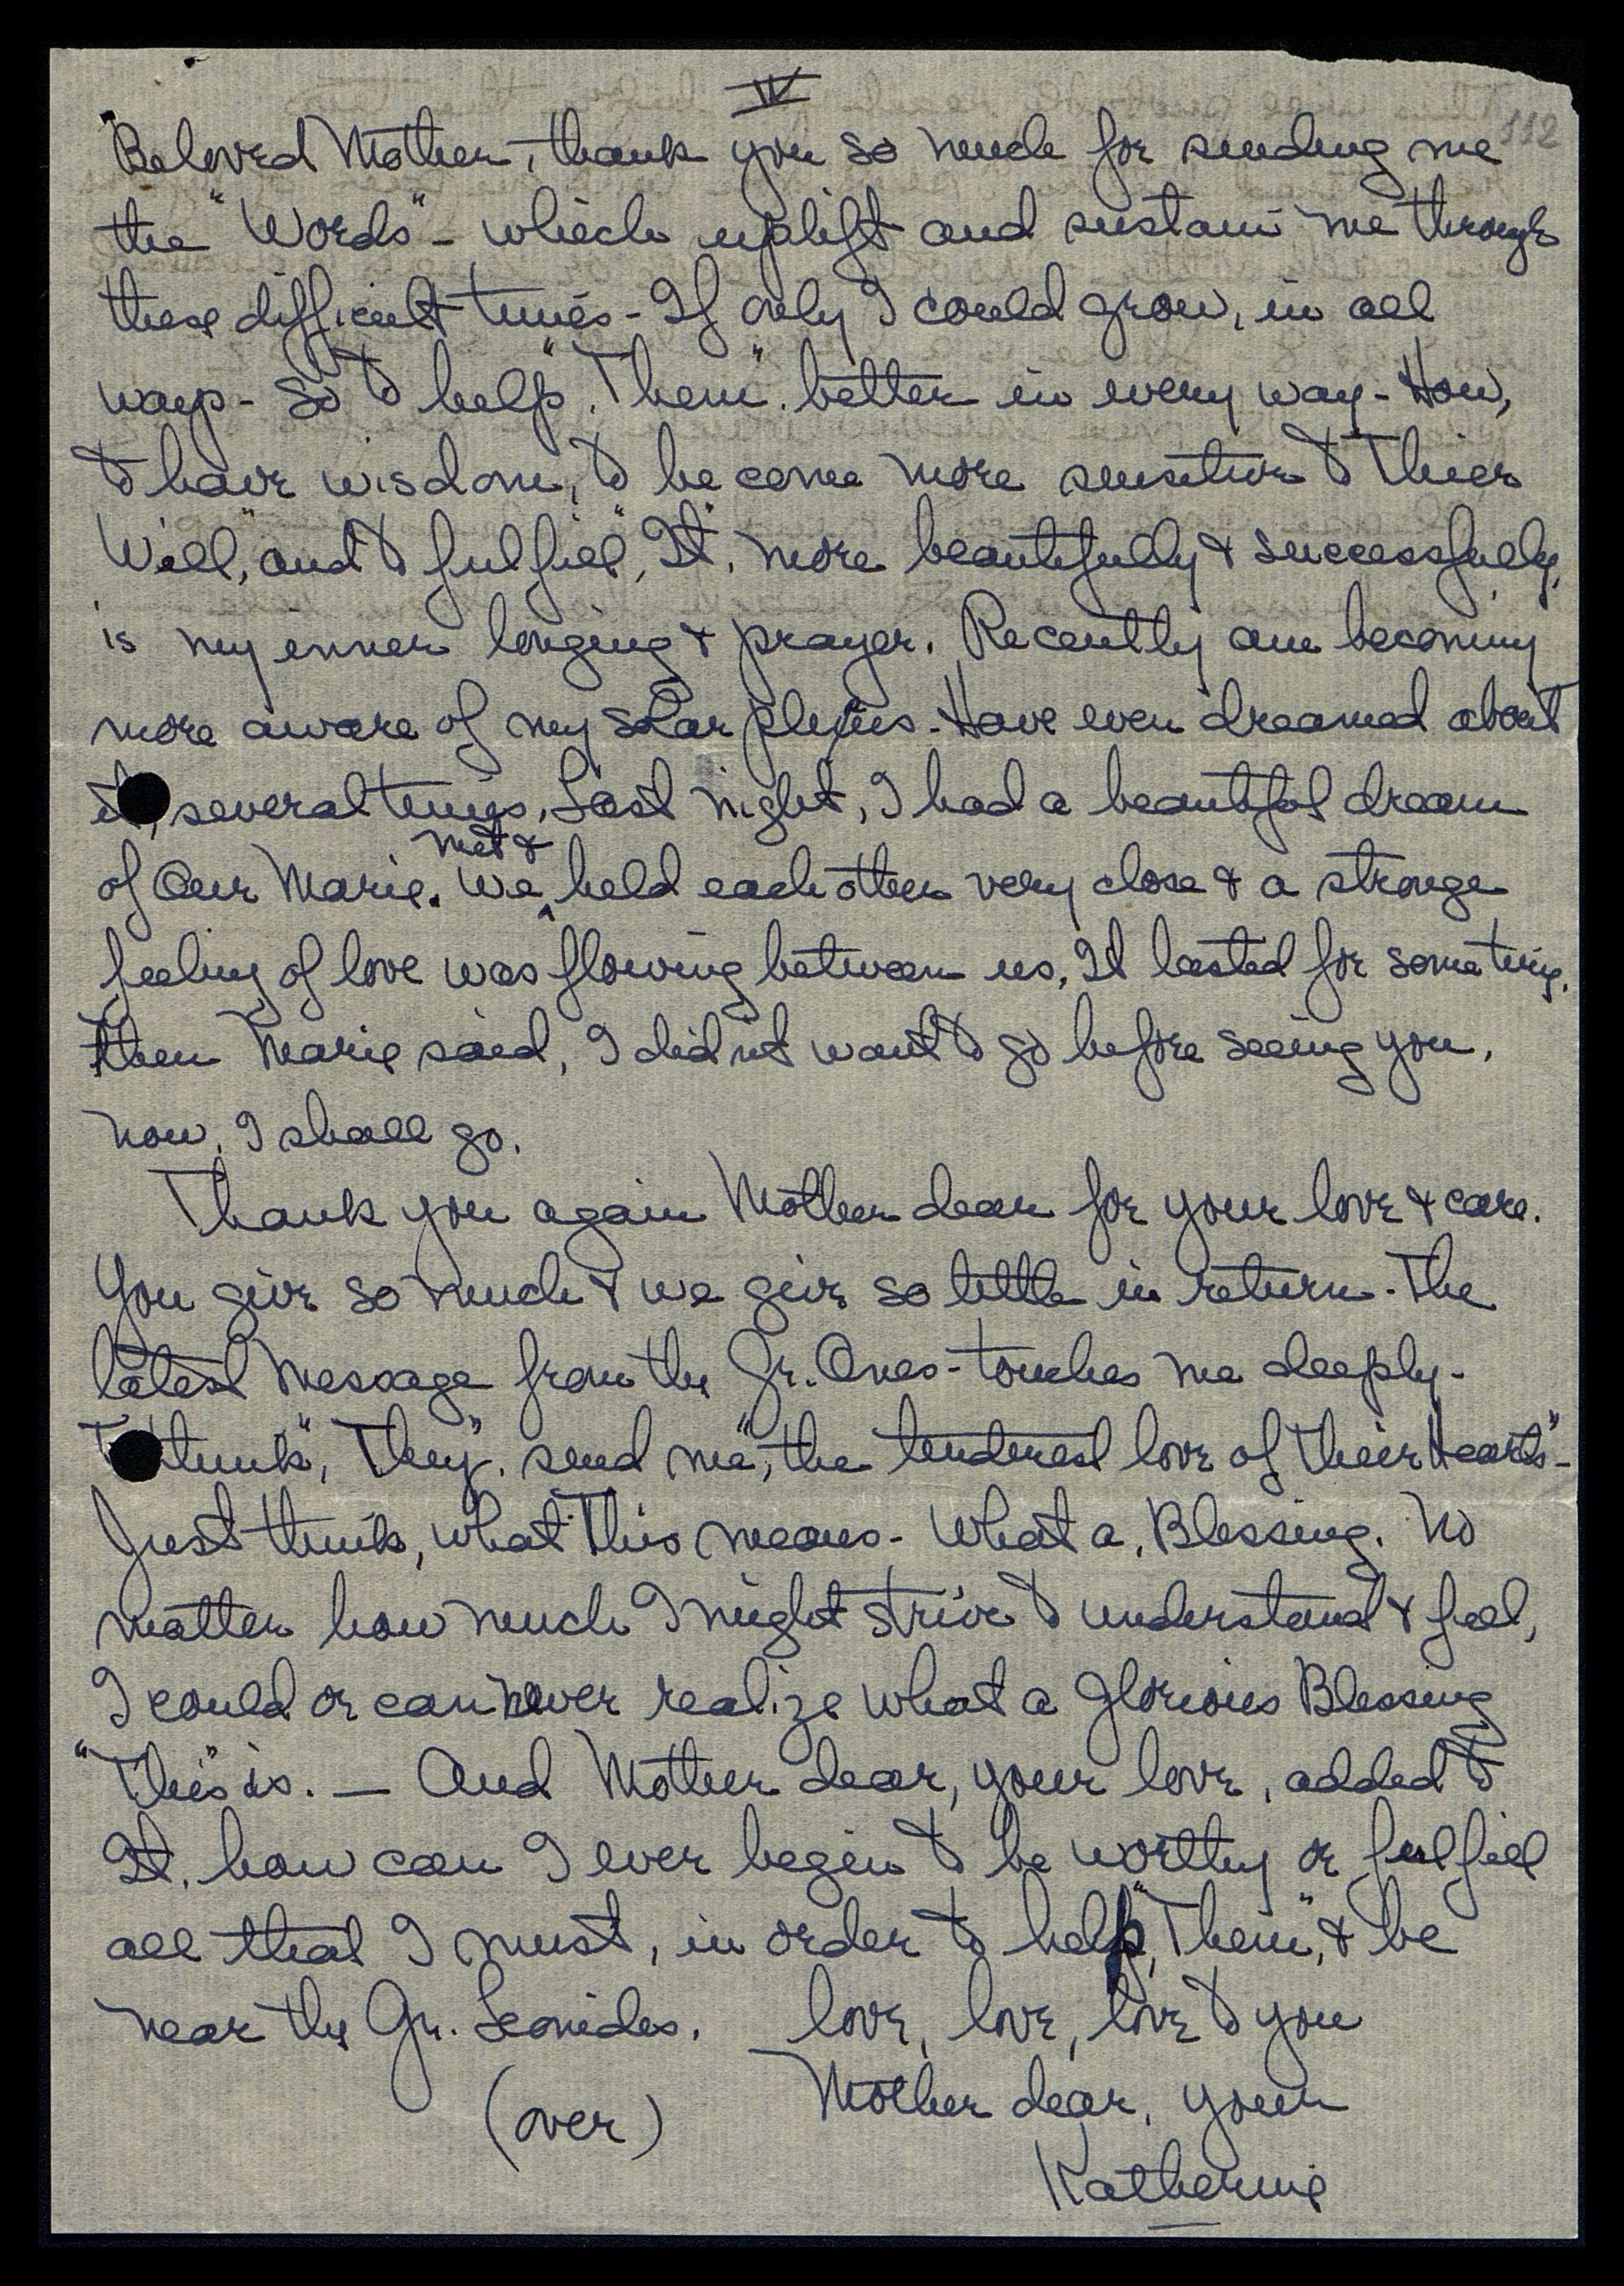 IV
112
Beloved Mother, thank you so much for sending me
the "Words" - which uplift and sustain me through
these difficult times - If only I could grow, in all
ways - so to help "Them" better in every way - How,
to have wisdom, to become more sensitive to "Their
Will," and to fulfill, "It", more beautifully & successfully,
is my inner longing & prayer. Recently am becoming
more aware of my solar plexus - Have even dreamed about
it, several times. Last night, I had a beautiful dream
met &
of Our Marie. We ^ held each other very close & a strong
feeling of love was flowing between us, It lasted for some time,
then Marie said, I did not want to go before seeing you,
now, I shall go.
Thank you again Mother dear for your love & care.
You give so much & we give so little in return - The
latest Message from the Gr. Ones - touches me deeply -
To think, "They", send me, "the tenderest love of Their Hearts" -
Just think, what This means - What a, Blessing. No
matter how much I might strive to understand & feel,
I could or can never realize what a Glorious Blessing
"This" is. — And Mother dear, your love, added to
It, how can I ever begin to be worthy or fulfill
all that I must, in order to help, "Them", & be
near the Gr. Leonides. love, love, love to you
(over) Mother dear, your
Katherine